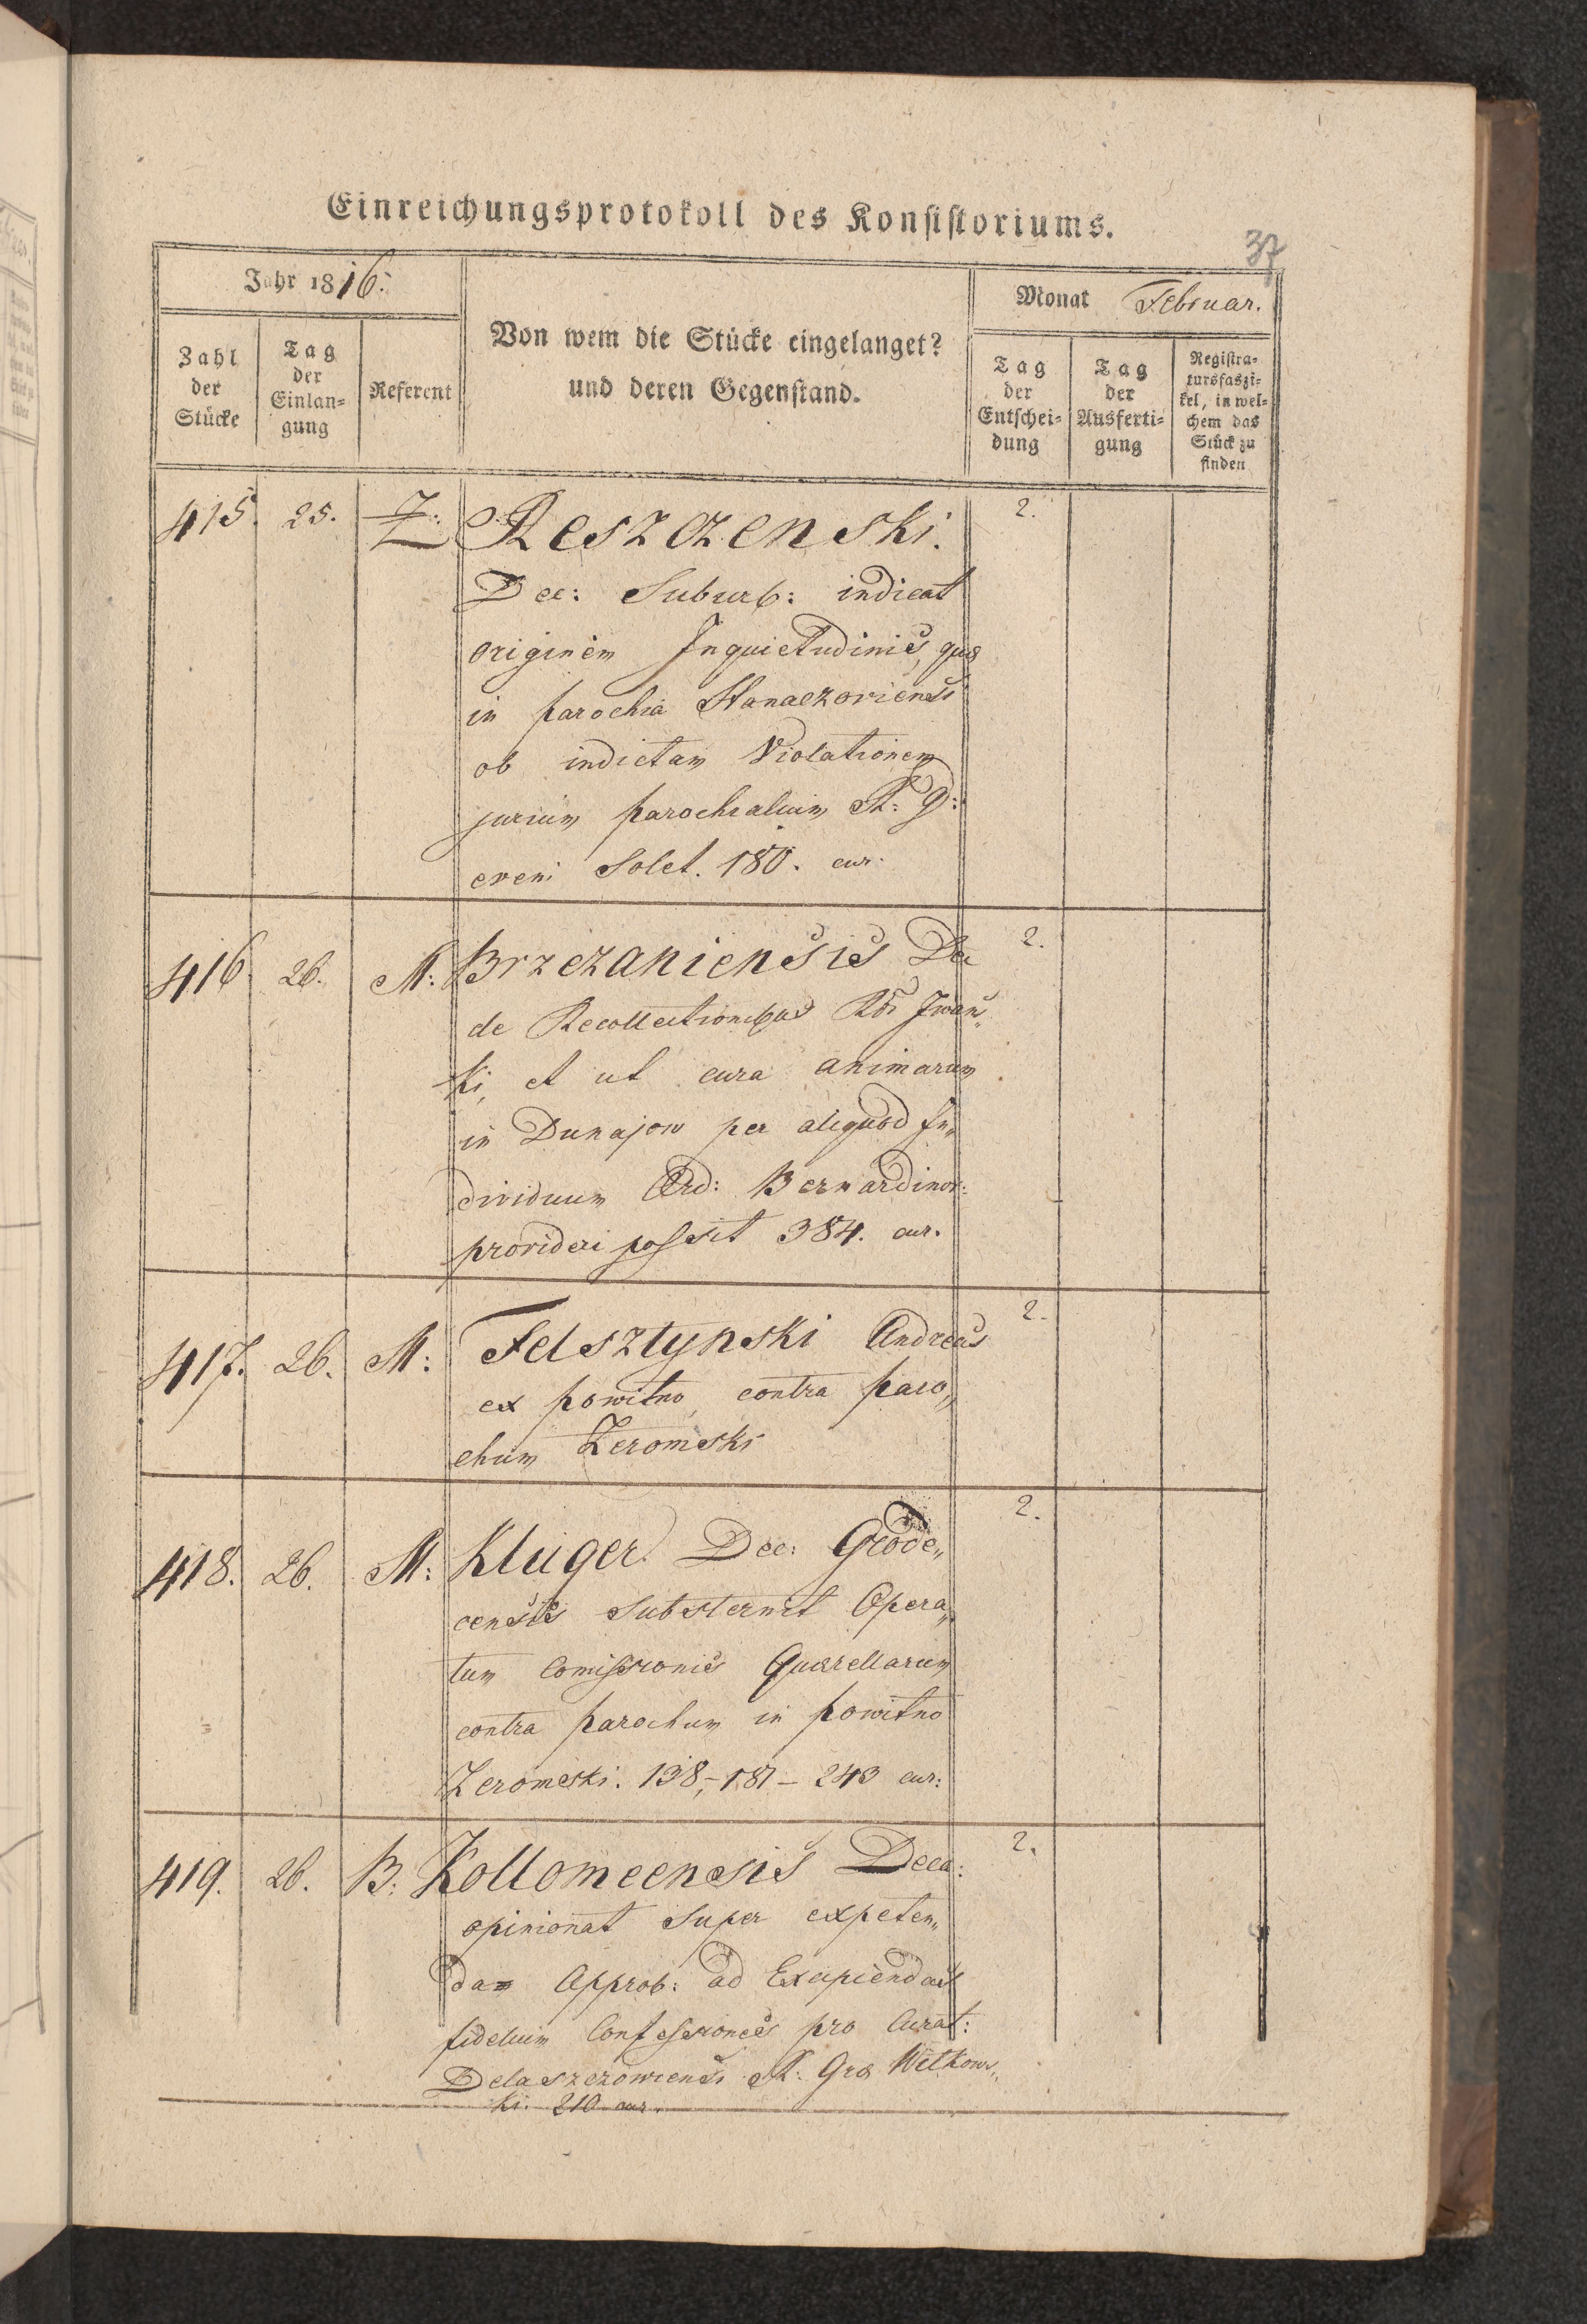 Einreichungsprotokoll des Konsistoriums.
37
Jahr 1816.
Von wem die Stücke eingelanget?
und deren Gegenstand.
Monat Februar.
Zahl
der
Stücke
Tag
der
Einlan-
gung
Referent
Tag
der
Entschei-
dung
Tag
der
Ausferti-
gung
Registra-
tursfaszi-
kel, in wel-
chem das
Stück zu
finden
415. 25. Z: Reszczenski. 2.
Dec: Suburb: indicat
originem Inquietudinis, quæ
in parochia Hanaczoviensi
ob indictam Violationem
jurium parochialium R: G:
eveni solet. 180. cur.
416. 26. M: Brzezaniensis Dec 2.
de Recollectionibus Rdi Iwan„
ki, et ut cura animarum
in Dunajow per aliquod In„
dividuum Ord: Bernardinor:
provideri possit 384. cur.
417. 26. M: Felsztynski Andreas 2.
ex powitno, contra paro„
chum Zeromski
418. 26. M: Kluger. Dec: Grode„ 2.
censis substernit Opera„
tum Comissionis Quærellarum
contra parochum in powitno
Zeromski. 138,– 187 – 243 cur:
419. 26. B: Kollomeensis Deca: 2.
opinionat super expeten„
da Approb: ad Excipiendas
fidelium Confessiones pro Curat:
Delaszczowiensi R: Gra Witkows„
ki. 210 cur.